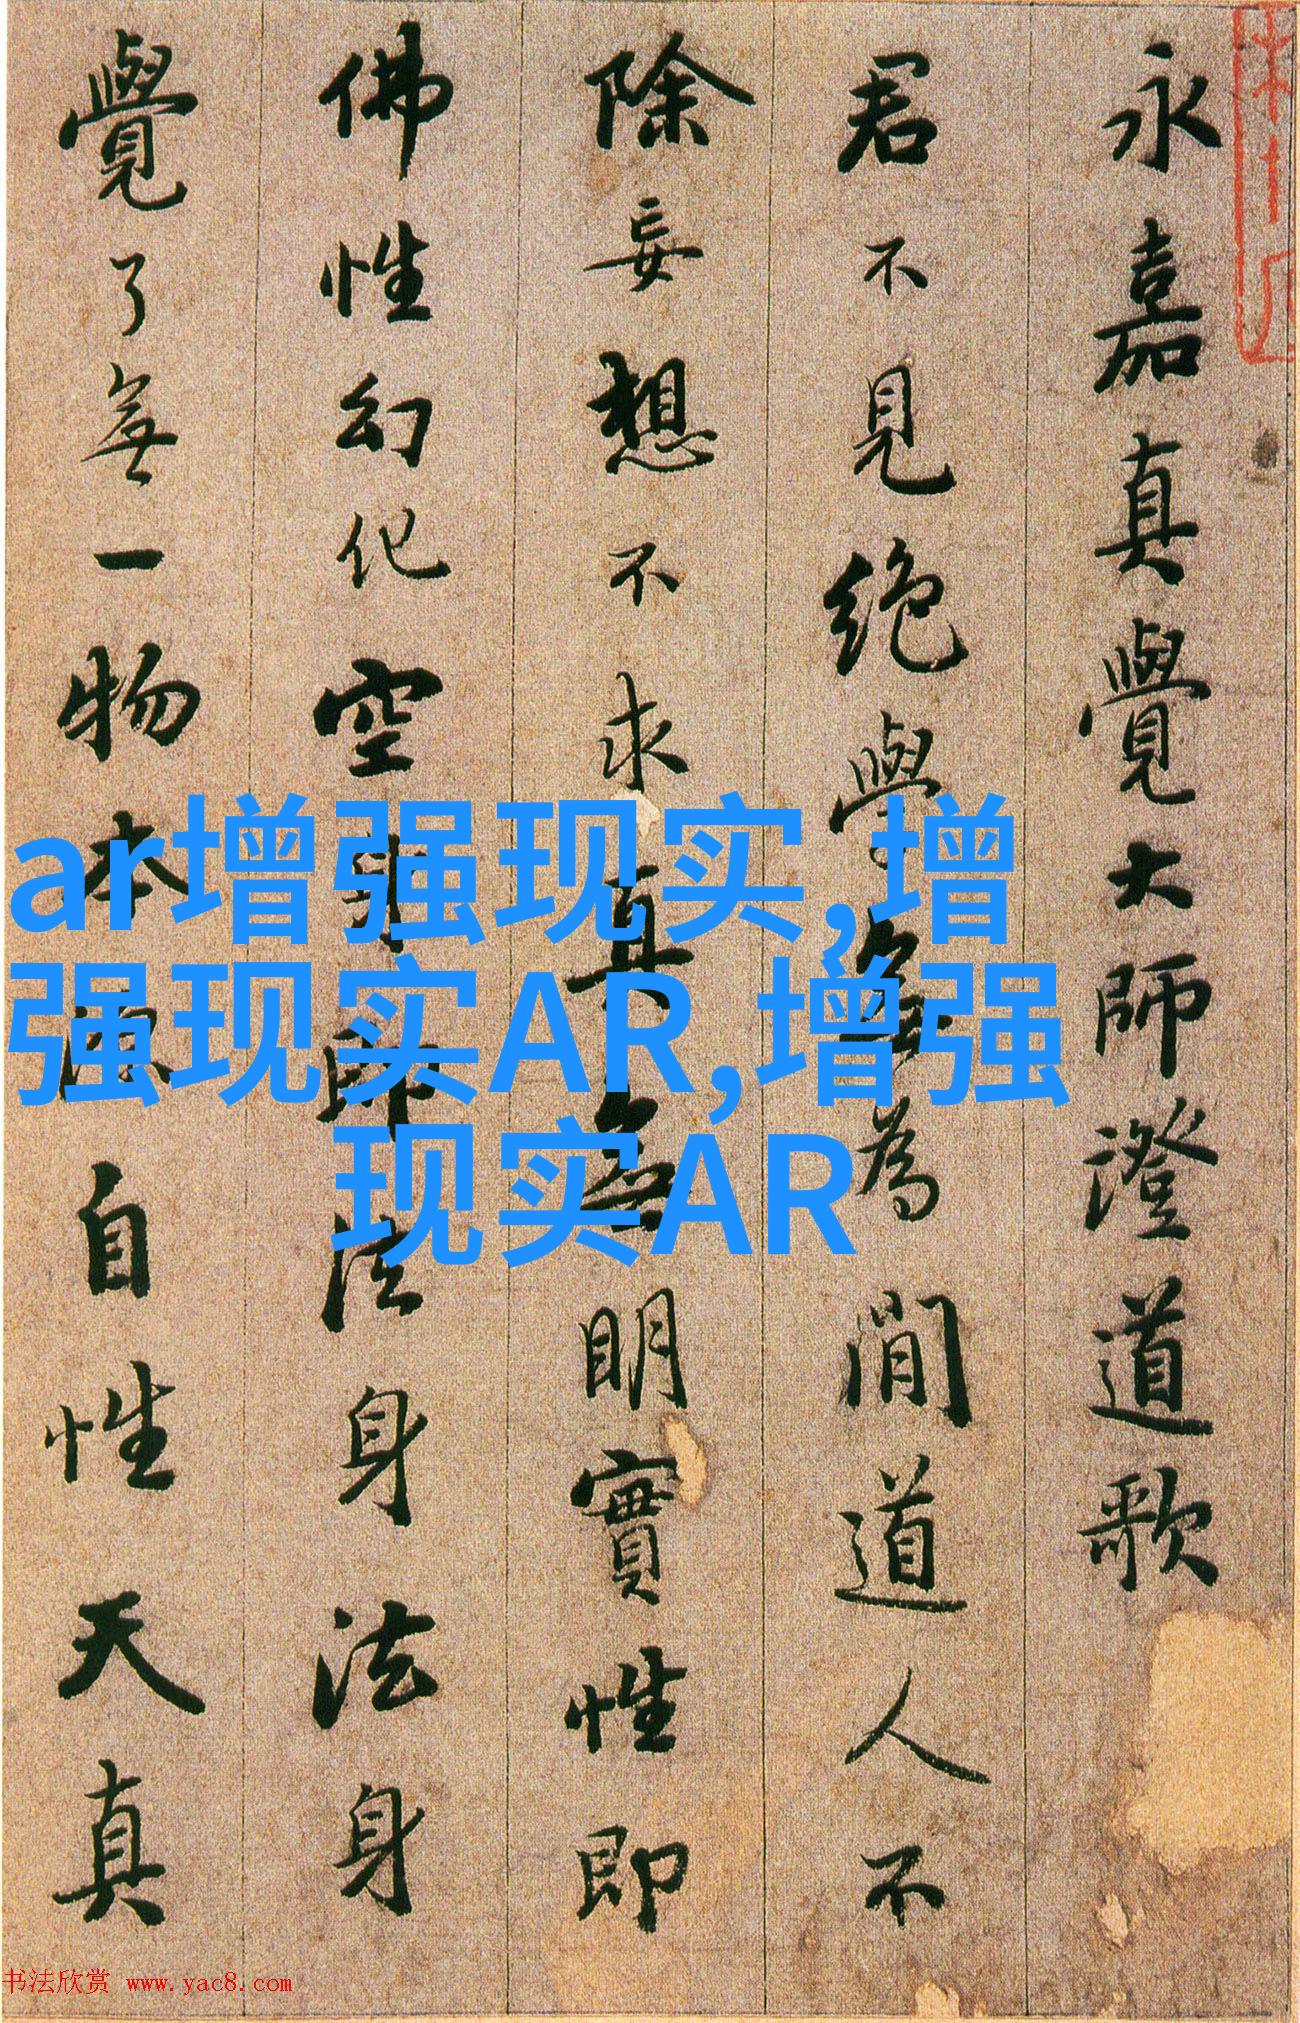 永嘉真覺大師澄道歌
君不見絕學無為閒道人不
除妄想不求真無明實性即
佛性幻化空身即法身法身
覺了無一物本源自性天真
ar增强现实,增
强现实AR,增强
现实AR
书法欣赏 www.yac8.com